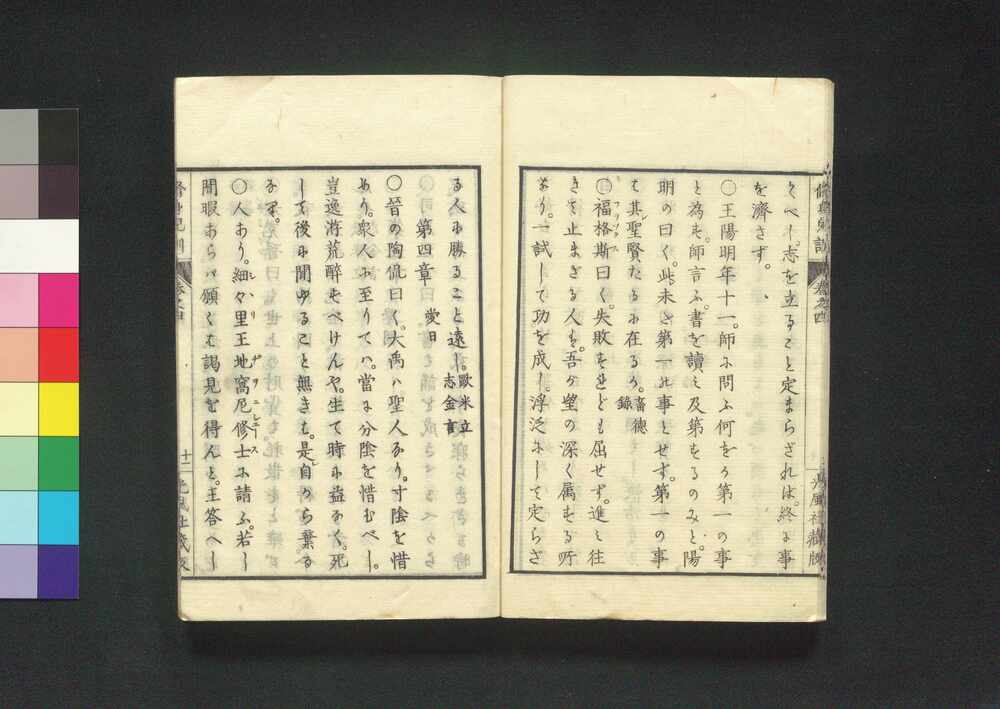 くべし。志を立ること定まらざれは。終に事
を濟さず。
〇王陽明年十一。師に問ふ何をか第一の事
と為す。師言ふ。書を讀み及第するのみと。陽
明の曰く。此未だ第一の事とせず。第一の事
は其聖賢たるに在るか。畜德録
〇福格斯曰く。失敗をせども屈せず。進み往
きて止まざる人を。吾か望の深く属する所
なり。一試して功を成し。浮泛にして定らざ
る人に勝ること遠し。歐米立志金言
第四章 愛日
〇晉の陶侃曰く。大禹ハ聖人なり。寸陰を惜
めり。衆人に至りてハ。當に分陰を惜むべし。
豈逸游荒醉すべけんや。生て時に益なく。死
して後に聞ゆること無きは。是自から棄る
なり。
〇人あり。細々里王地窩尼修士に請ふ。若し
間暇あらバ願くは謁見を得んと。王答へし
修身兒訓 卷之四
光風社藏版
修身兒訓 卷之四 十二 光風社藏版